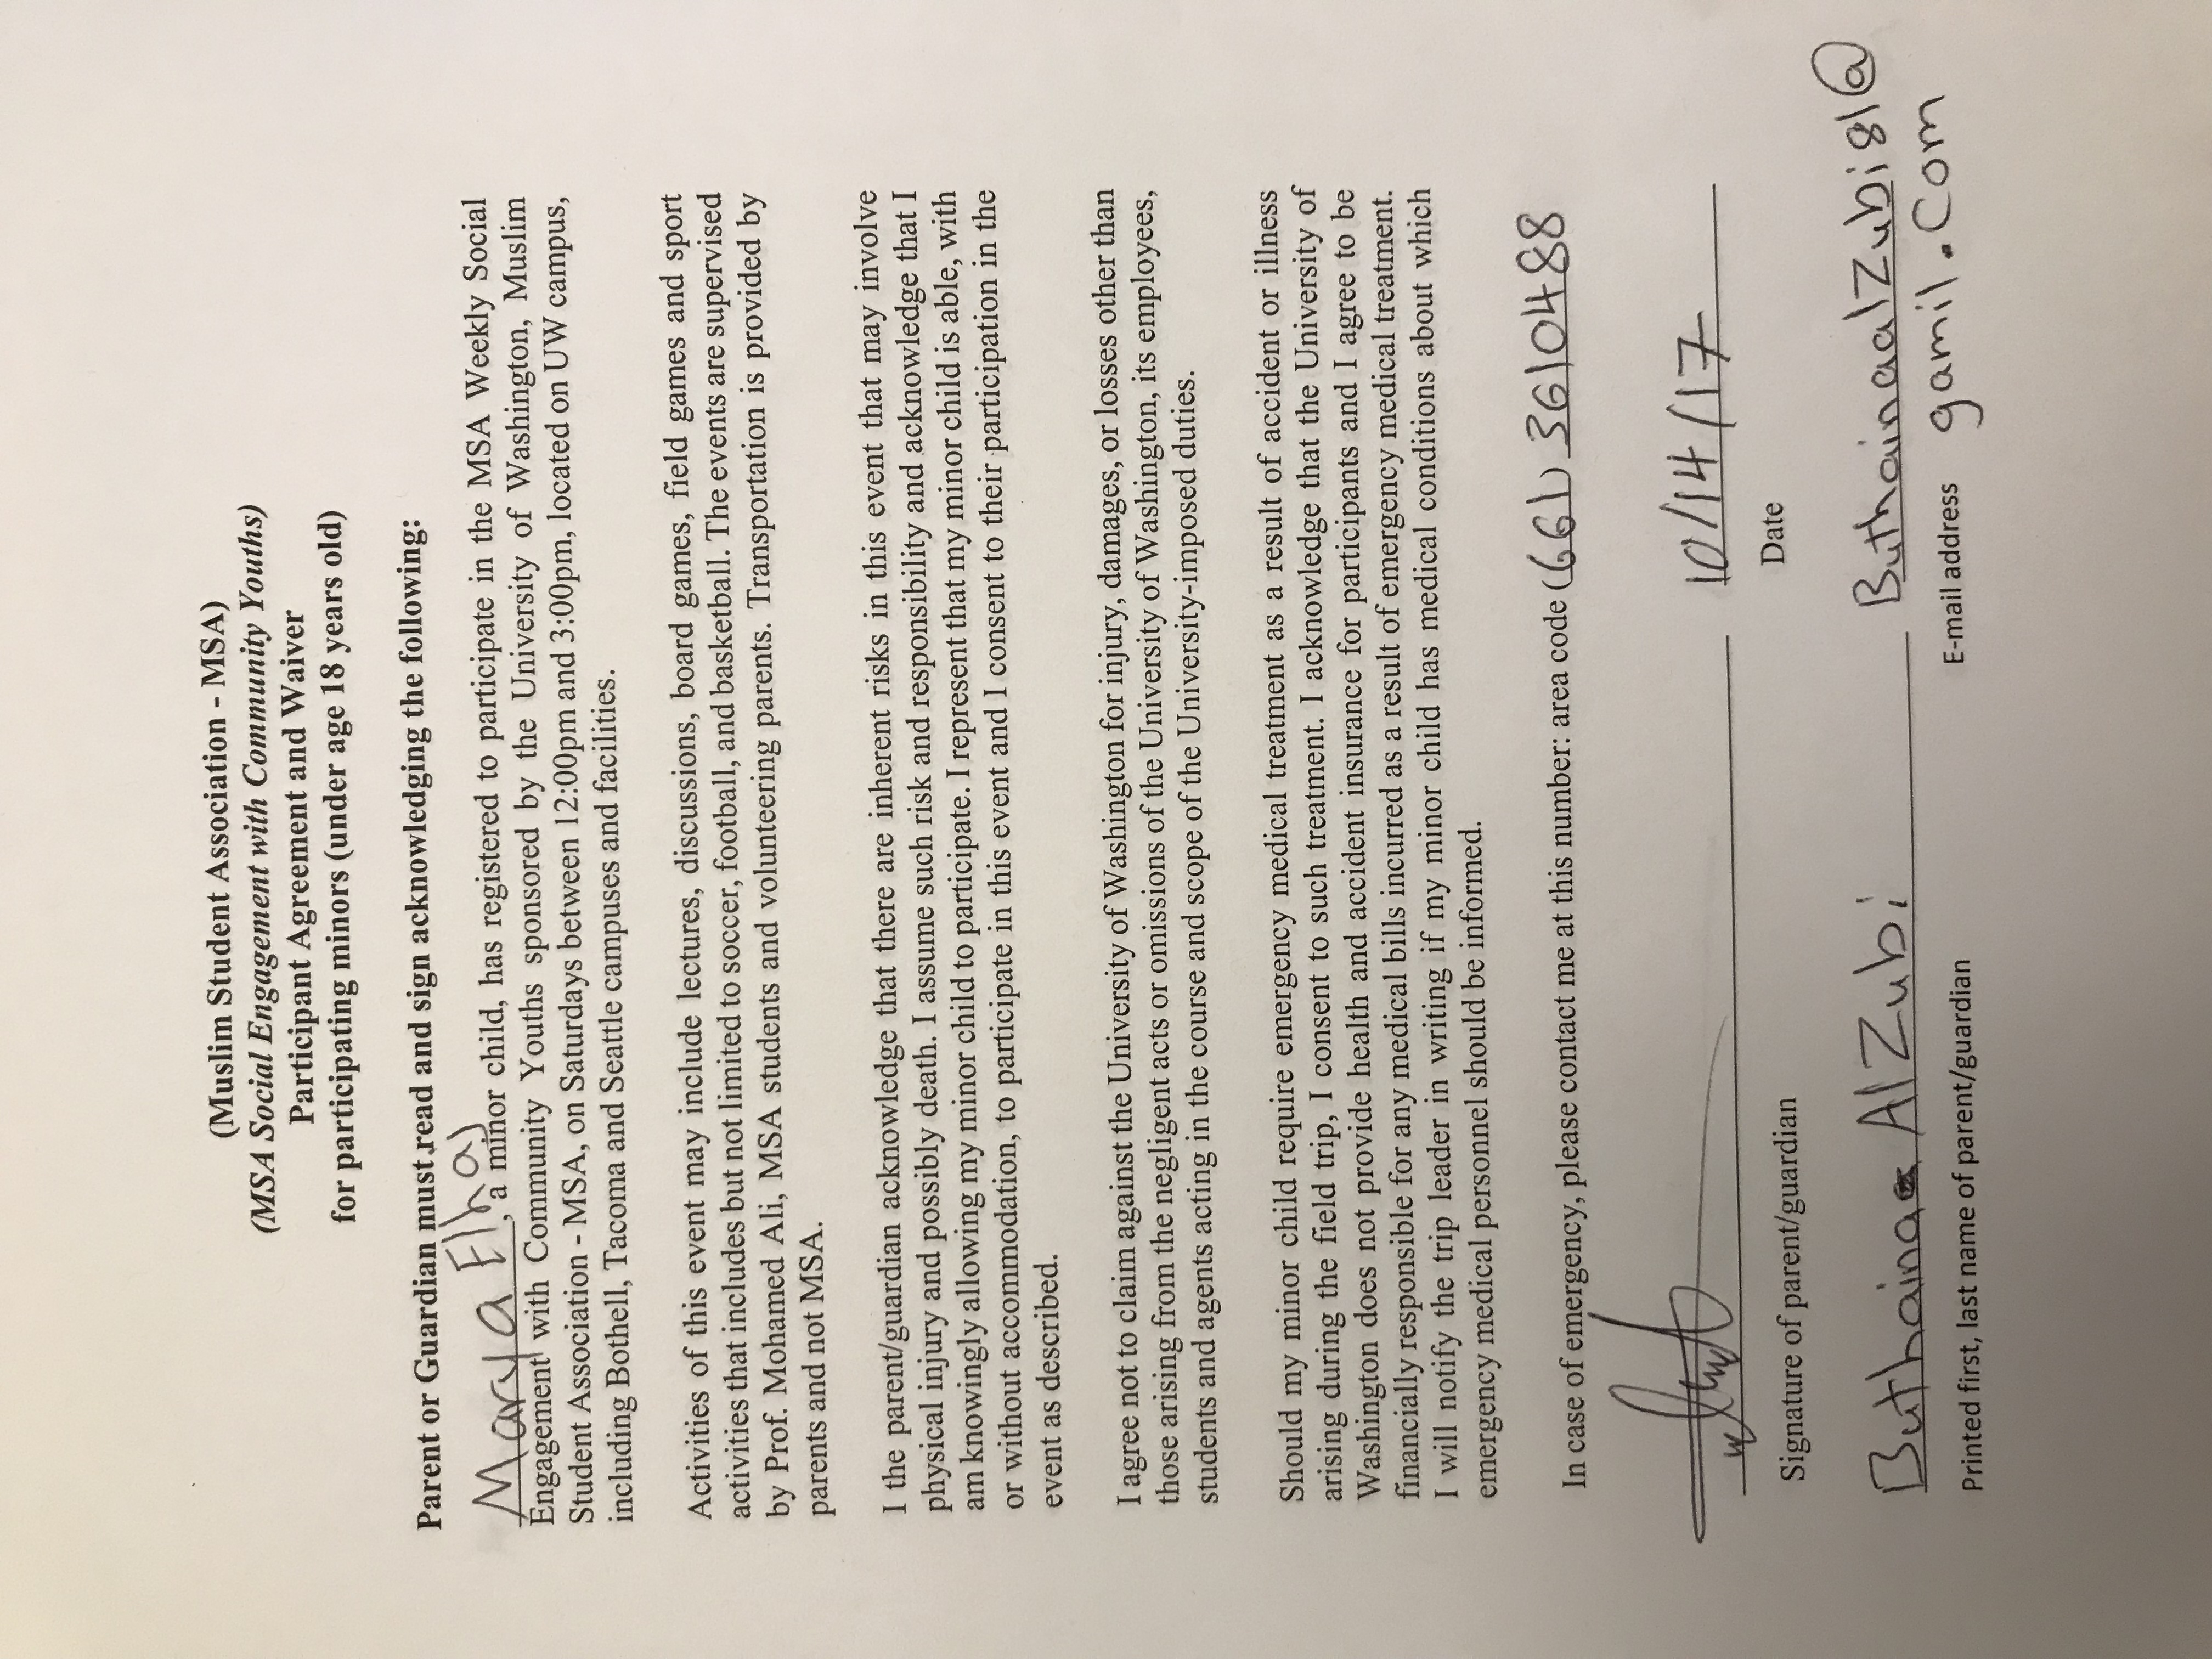 (Muslim Student Association - MSA)
(MSA Social Engagement with Community Youths)
Participant Agreement and Waiver
for participating minors (under age 18 years old)
Parent or Guardian must read and sign acknowledging the following:
Marya Elhaj, a minor child, has registered to participate in the MSA Weekly Social
Engagement with Community Youths sponsored by the University of Washington, Muslim
Student Association - MSA, on Saturdays between 12:00pm and 3:00pm, located on UW campus,
including Bothell, Tacoma and Seattle campuses and facilities.
Activities of this event may include lectures, discussions, board games, field games and sport
activities that includes but not limited to soccer, football, and basketball. The events are supervised
by Prof. Mohamed Ali, MSA students and volunteering parents. Transportation is provided by
parents and not MSA.
I the parent/guardian acknowledge that there are inherent risks in this event that may involve
physical injury and possibly death. I assume such risk and responsibility and acknowledge that I
am knowingly allowing my minor child to participate. I represent that my minor child is able, with
or without accommodation, to participate in this event and I consent to their participation in the
event as described.
I agree not to claim against the University of Washington for injury, damages, or losses other than
those arising from the negligent acts or omissions of the University of Washington, its employees,
students and agents acting in the course and scope of the University-imposed duties.
Should my minor child require emergency medical treatment as a result of accident or illness
arising during the field trip, I consent to such treatment. I acknowledge that the University of
Washington does not provide health and accident insurance for participants and I agree to be
financially responsible for any medical bills incurred as a result of emergency medical treatment.
I will notify the trip leader in writing if my minor child has medical conditions about which
emergency medical personnel should be informed.
In case of emergency, please contact me at this number: area code (661) 3610488
10/14/17
Signature of parent/guardian Date
Buthaina AlZubi Buthainaalzubi81@
Printed first, last name of parent/guardian E-mail address gamil.com